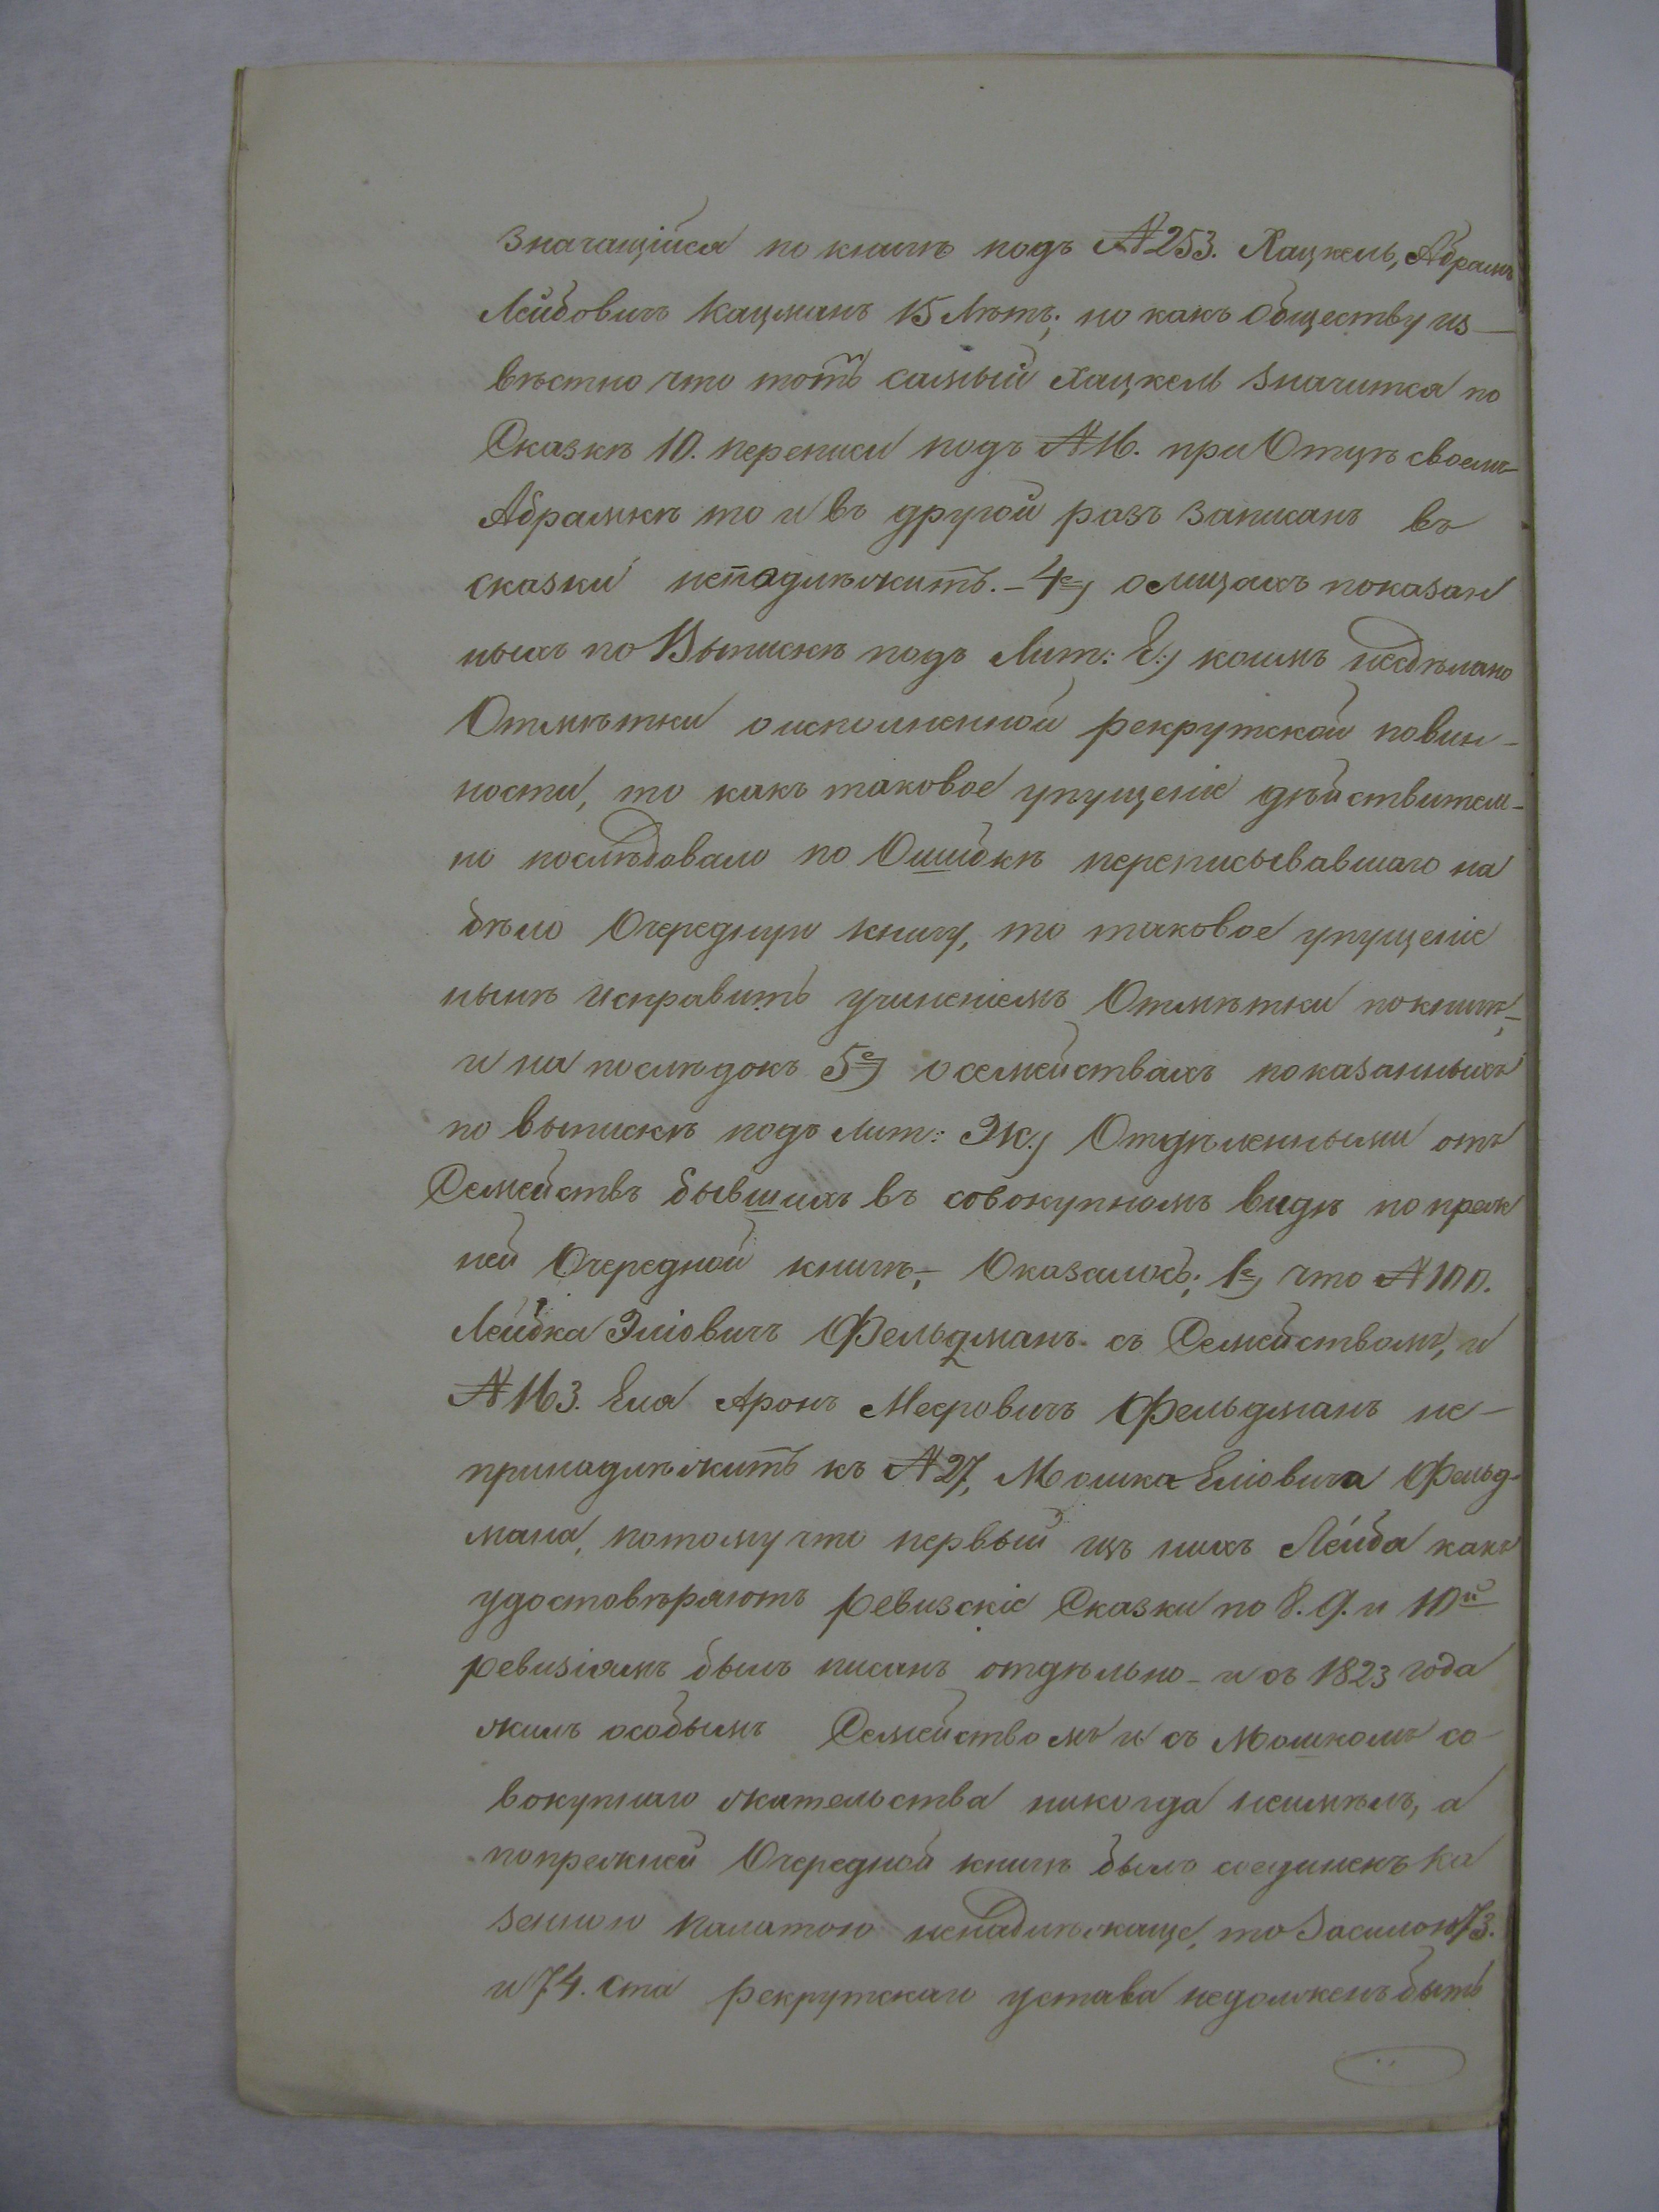 значащійся по книгѣ подъ №253. Хацкель, Абрамъ
Лейбовичъ Кацманъ 15 Лѣтъ; но какъ Обществу из-
вѣстно что тотъ самый Хацкель значится по
Сказкѣ 10. переписи подъ №16. при Отцѣ своемъ
Абрамкѣ то и въ другой разъ записанъ въ
сказки неподлѣжитъ. - 4е) о лицахъ показан
ныхъ по Выпискѣ подъ Лит: Е:) коимъ несдѣлано
Отмѣтки о исполненной рекрутской повин-
ности, то какъ таковое упущеніе дѣйствитель-
но послѣдовало по Ошибкѣ переписывавшаго на
бѣло Очередную книгу, то таковое упущеніе
нынѣ исправить учиненіемъ Отмѣтки по книгѣ,-
и на послѣдокъ 5е) о семействахъ показанныхъ
по выпискѣ подъ лит: Ж:) Отдѣленными отъ
Семействъ бывшихъ въ совокупномъ видѣ по преж
ней Очередной книгѣ,- Оказалось; 1е) что №100.
Лейбка Эліовичъ Фельдманъ съ Семействомъ, и
№163. Еля Аронъ Мееровичъ Фельдманъ не-
принадлѣжитъ къ №27, Мошка Еліовича Фельд-
мана, потому что первый изъ нихъ Лейба какъ
удостовѣряютъ ревизскіе Сказки по 8. 9. и 10й
ревизіямъ былъ писанъ отдѣльно - и съ 1823 года
жилъ особымъ Семействомъ и съ Мошкомъ со-
вокупнаго жительства никогда неимѣлъ, а
попрежней Очередной книгѣ былъ соединенъ Ка
зенною палатою ненадлѣжаще, то За силою 73.
и 74. ста рекрутскаго устава недолженъ быть